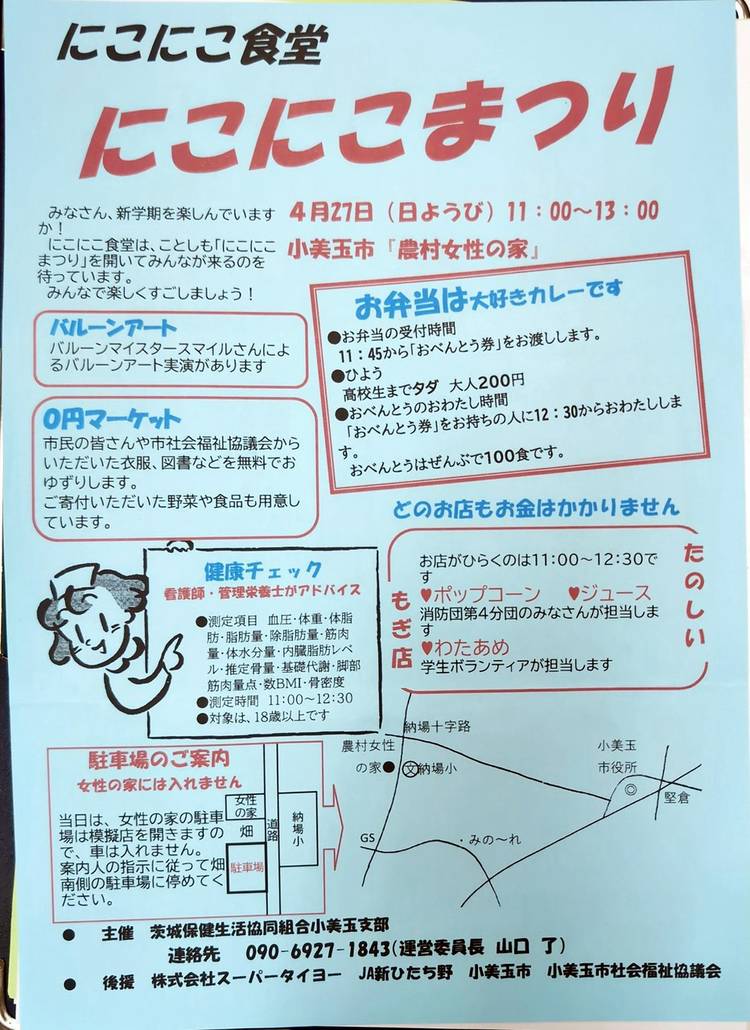 にこにこ食堂
にこにこまつり
みなさん、新学期を楽しんでいます
か！
にこにこ食堂は、ことしも「にこにこ
まつり」を開いてみんなが来るのを
待っています。
みんなで楽しくすごしましょう！
4月27日（日ようび）11：00〜13：00
小美玉市『農村女性の家』
バルーンアート
バルーンマイスタースマイルさんによ
るバルーンアート実演があります
お弁当は大好きカレーです
●お弁当の受付時間
11：45から「おべんとう券」をお渡しします。
●ひよう
高校生までタダ 大人200円
●おべんとうのおわたし時間
「おべんとう券」をお持ちの人に12：30からおわたししま
す。
おべんとうはぜんぶで100食です。
0円マーケット
市民の皆さんや市社会福祉協議会から
いただいた衣服、図書などを無料でお
ゆずりします。
ご寄付いただいた野菜や食品も用意し
ています。
どのお店もお金はかかりません
たのしい
もぎ店
お店がひらくのは11:00〜12:30で
す
♥ポップコーン ♥ジュース
消防団第4分団のみなさんが担当しま
す
♥わたあめ
学生ボランティアが担当します
健康チェック
看護師・管理栄養士がアドバイス
●測定項目 血圧・体重・体脂
肪・脂肪量・除脂肪量・筋肉
量・体水分量・内臓脂肪レベ
ル・推定骨量・基礎代謝・脚部
筋肉量点・数BMI・骨密度
●測定時間 11:00〜12:30
●対象は、18歳以上です
駐車場のご案内
女性の家には入れません
当日は、女性の家の駐車
場は模擬店を開きますの
で、車は入れません。
案内人の指示に従って畑
南側の駐車場に停めてく
ださい。
女性
の家
畑
駐車場
道路
納場小
納場十字路
農村女性
の家●
文納場小
小美玉
市役所
◎
堅倉
GS
・みの〜れ
● 主催 茨城保健生活協同組合小美玉支部
連絡先 090-6927-1843(運営委員長 山口 了)
● 後援 株式会社スーパータイヨー JA新ひたち野 小美玉市 小美玉市社会福祉協議会